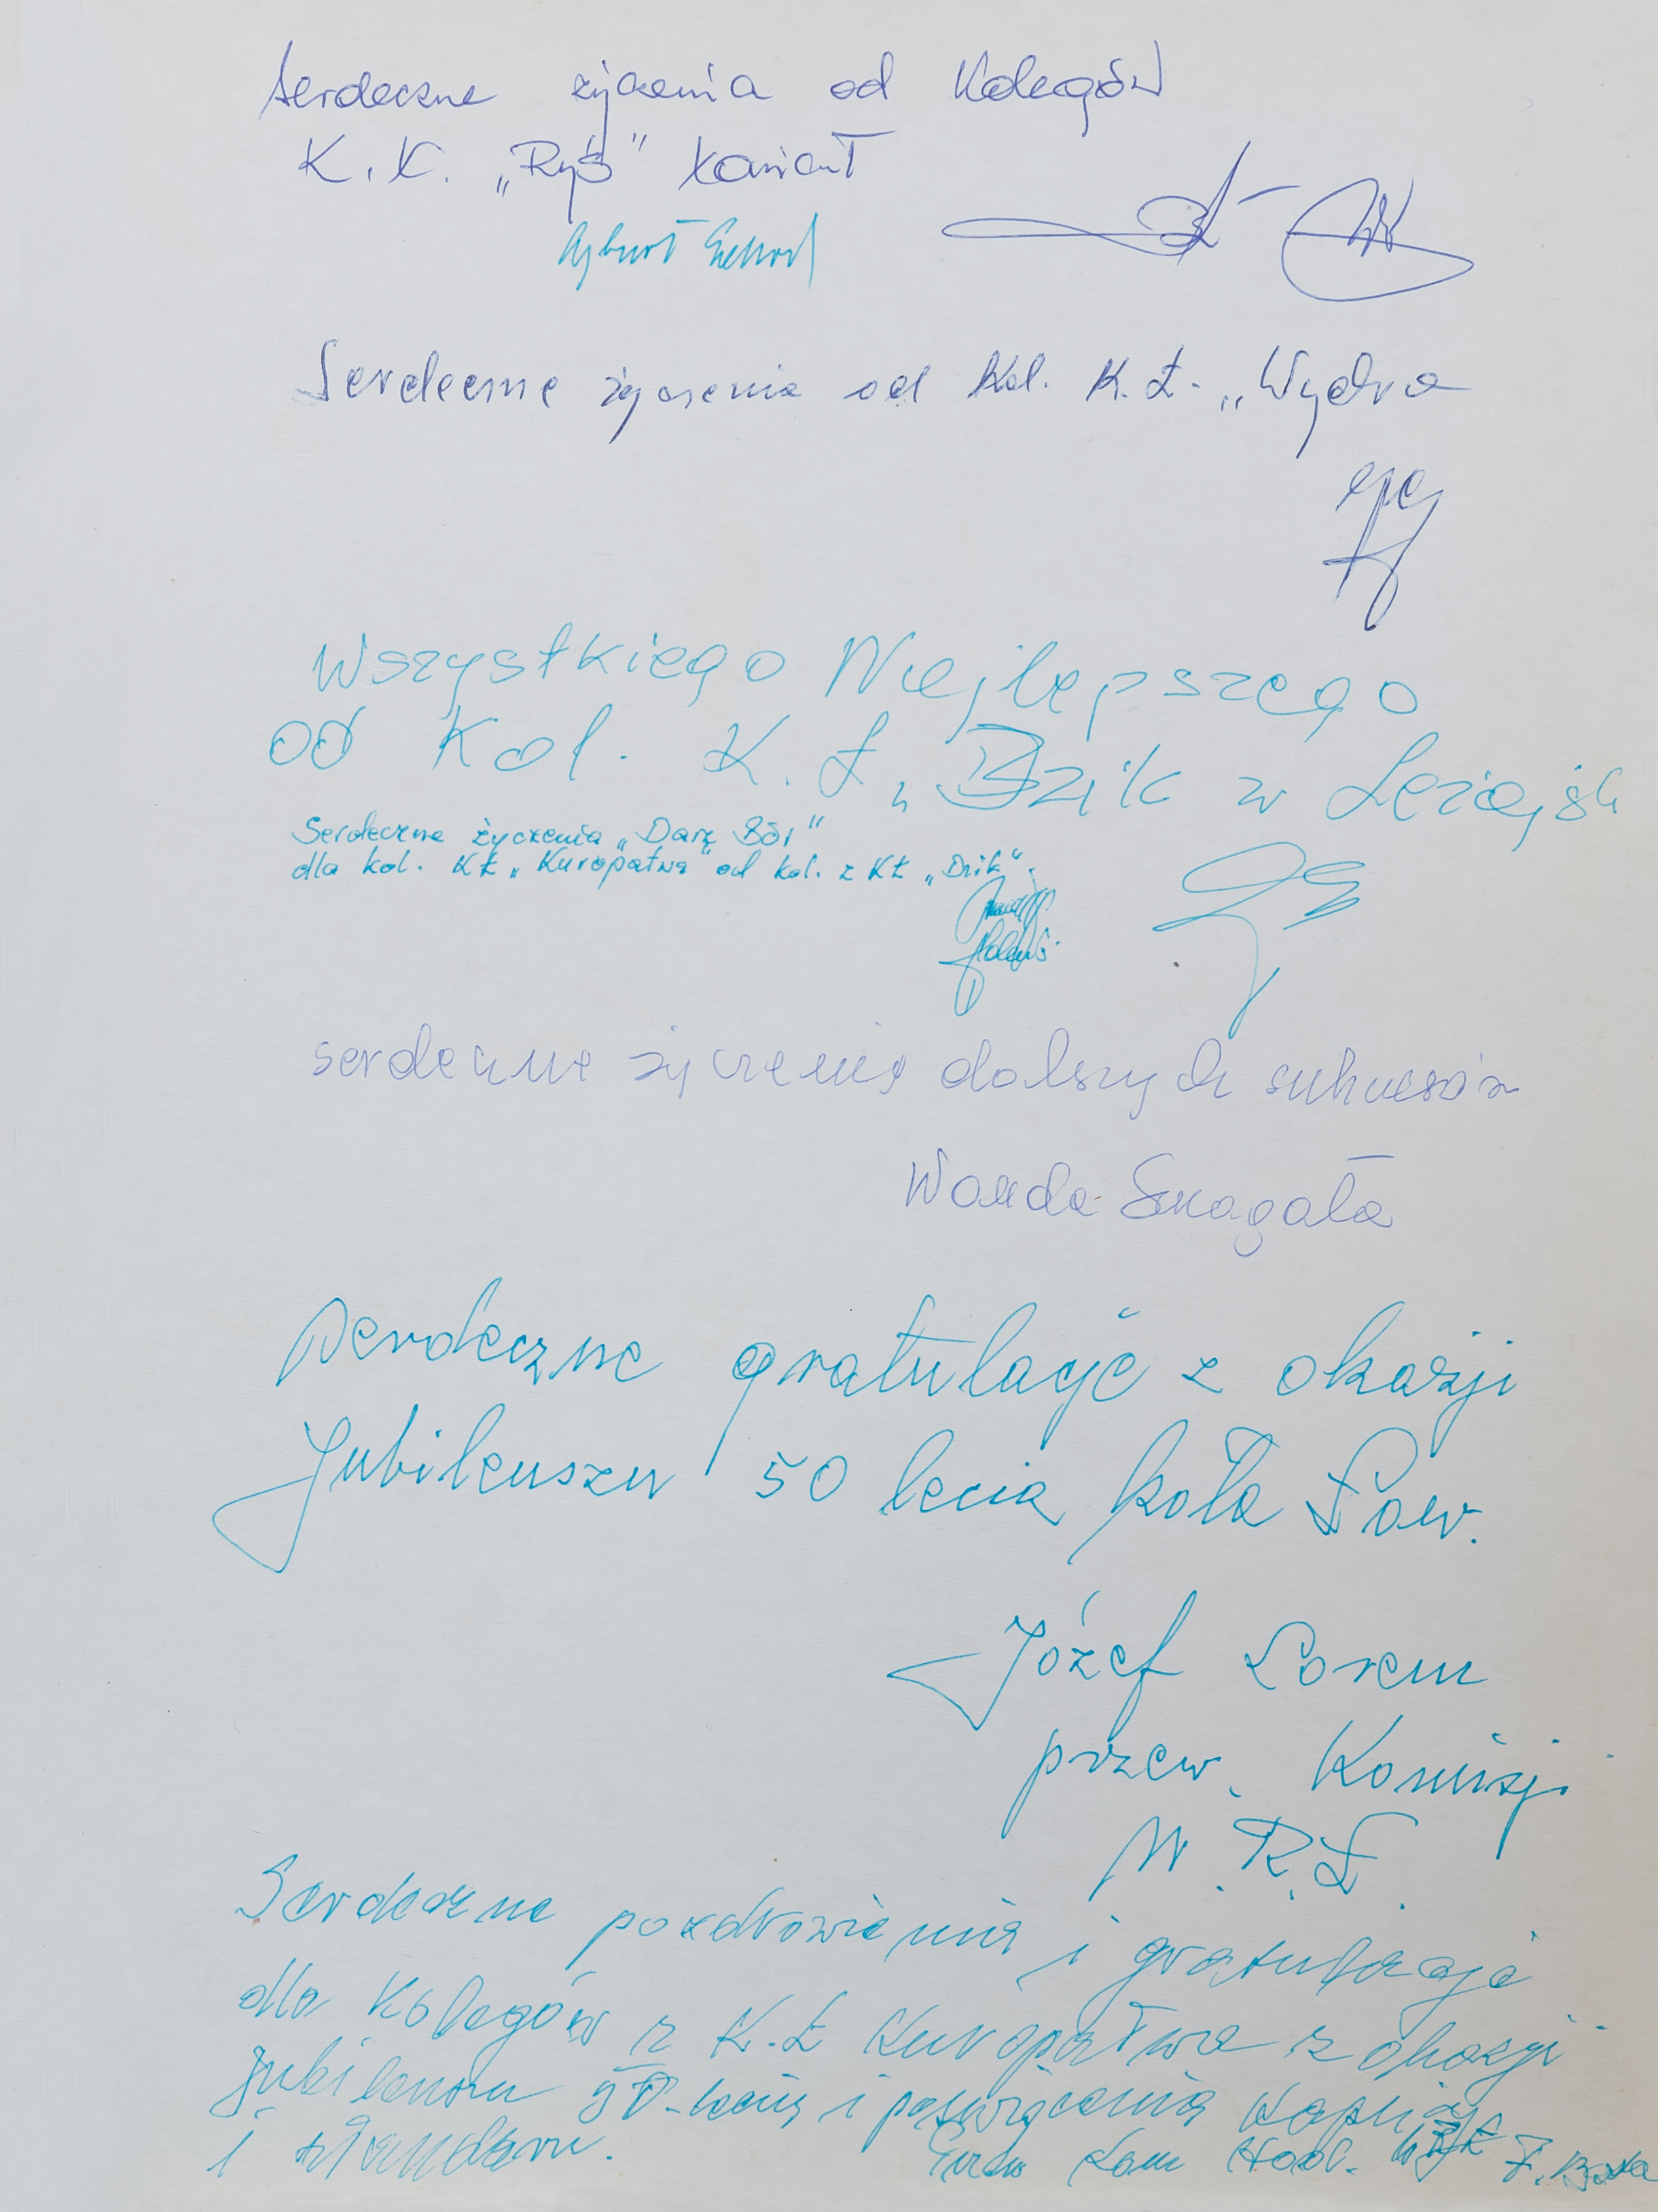 Serdeczne życzenia od Kolegów
K. Ł. „Ryś"
Serdeczne życzenia od Kol. K. Ł. „Wydra
Wszystkiego Najlepszego
od Kol. K. Ł „Dzik w Leżajsk
Serdeczne życzenia „Darz Bór"
dla kol. KŁ „Kuropatwa" od kol. z KŁ „Dzik".
serdeczne życzenia dalszych sukcesów
Wanda Smagała
Serdeczne gratulacje z okazji
Jubileuszu 50 lecia koła Łow.
Józef Lorem
przew. Komisji
W. R. Ł.
Serdeczne pozdrowienia i gratulacje
dla Kolegów z K. Ł Kuropatwa z okazji
jubileuszu 50-lecia i poświęcenia kaplicy
i sztandaru.